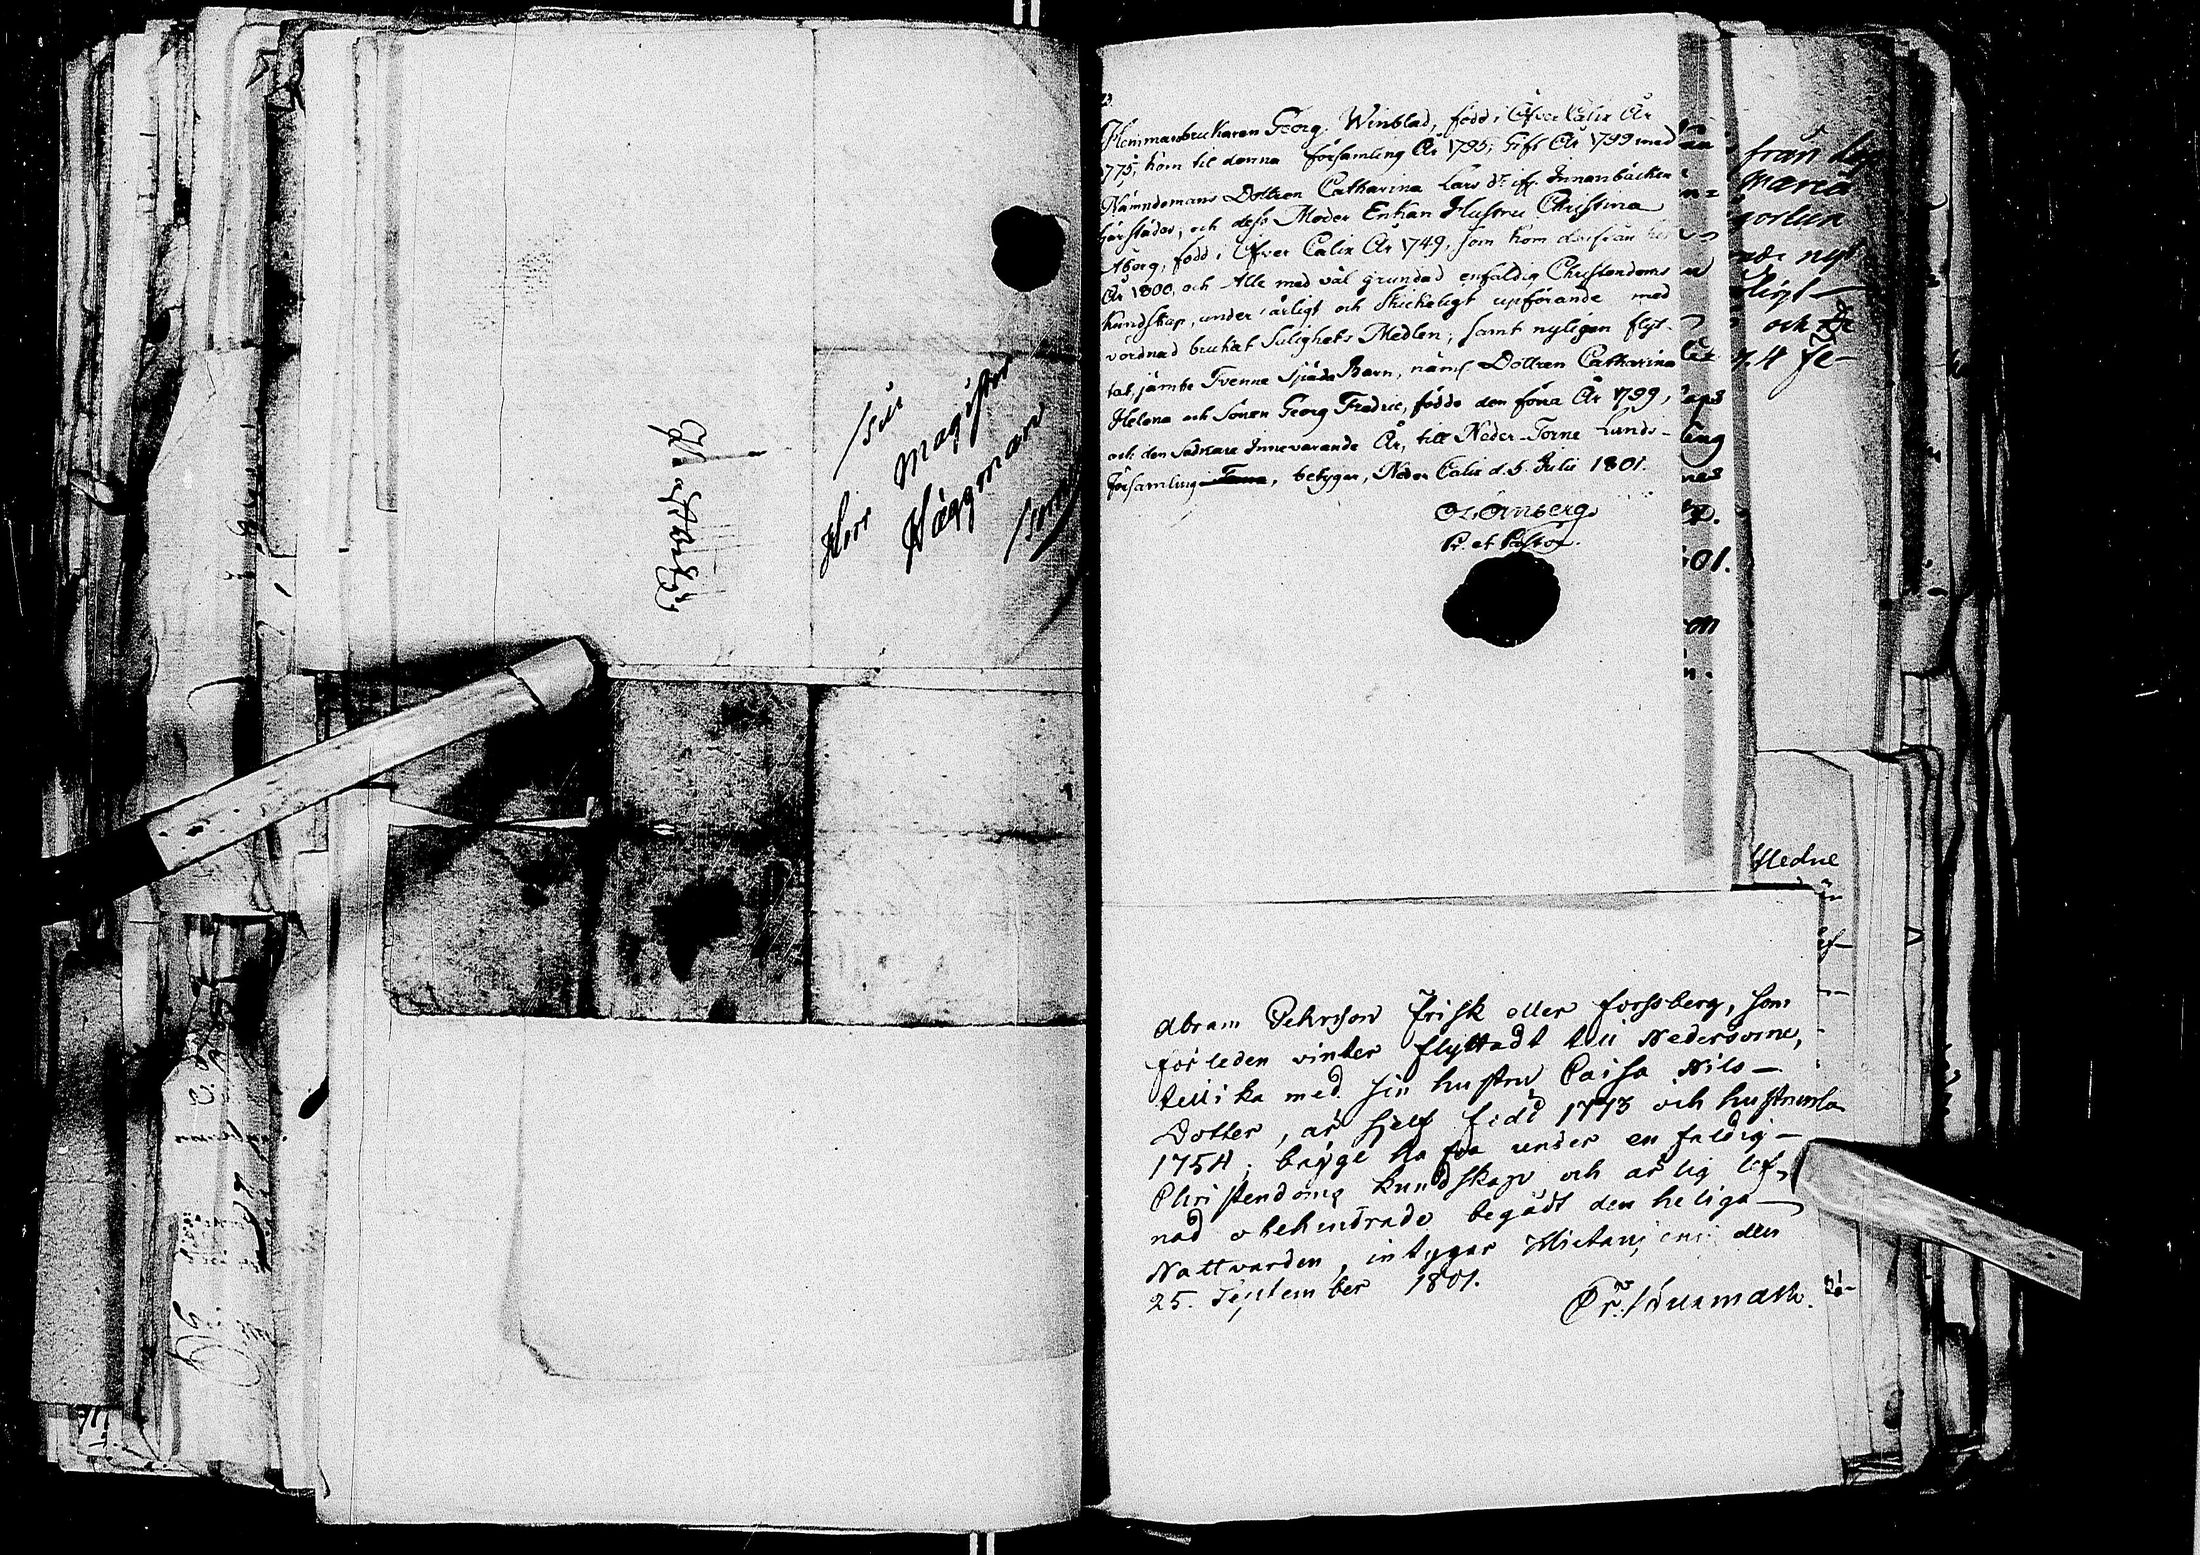 till
Herr Magister
Häggman
Attest
Hemmansbrukaren Georg Winblad, född i Öfver Calix År
1775, kom til denna församling År 1795; Gift År 1799 med
Nämndemans Dottren Catharina Lars dr ifr. Innanbäcken
härstädes, och dess Moder Enkan Hustru Christina
Åborg, född i Öfver Calix År 1749, som kom därifrån hit
År 1800, och Alle med väl grundad enfaldig Christendoms
kundskap, under ärligt och Skickeligt upförande med
vördnad brukat Salighets Medlen; samt nyligen flyt-
tat, jämte Tvenne Späda Barn, näml Dottren Catharina
Helena och Sonen Georg Fredric, födde den förra År 1799,
och den Sednare Innevarande År, till Neder-Torne Lands-
församling, betygar, Neder Calix d. 5 Julii 1801.
Pr. et Pastor.
från
Maria
nyt
och
Abram Pehrson Frisk eller Forssberg, som
förleden vinter flyttadt till Nedertorne,
tillika med sin hustru Caisa Nils-
Dotter, är sjelf född 1773 och hustrun
1754; bägge hafva under en faldig
Christendoms kundskap och ärlig lef-
nad obehindrade begådt den heliga
Nattvarden, intygar Hietaniemi den
25. September 1801.